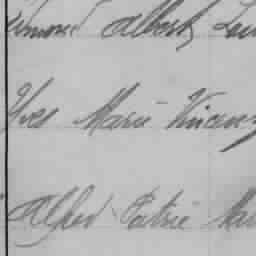 Edmond Albert
Yves Marie Vincent
Alfred Patrie